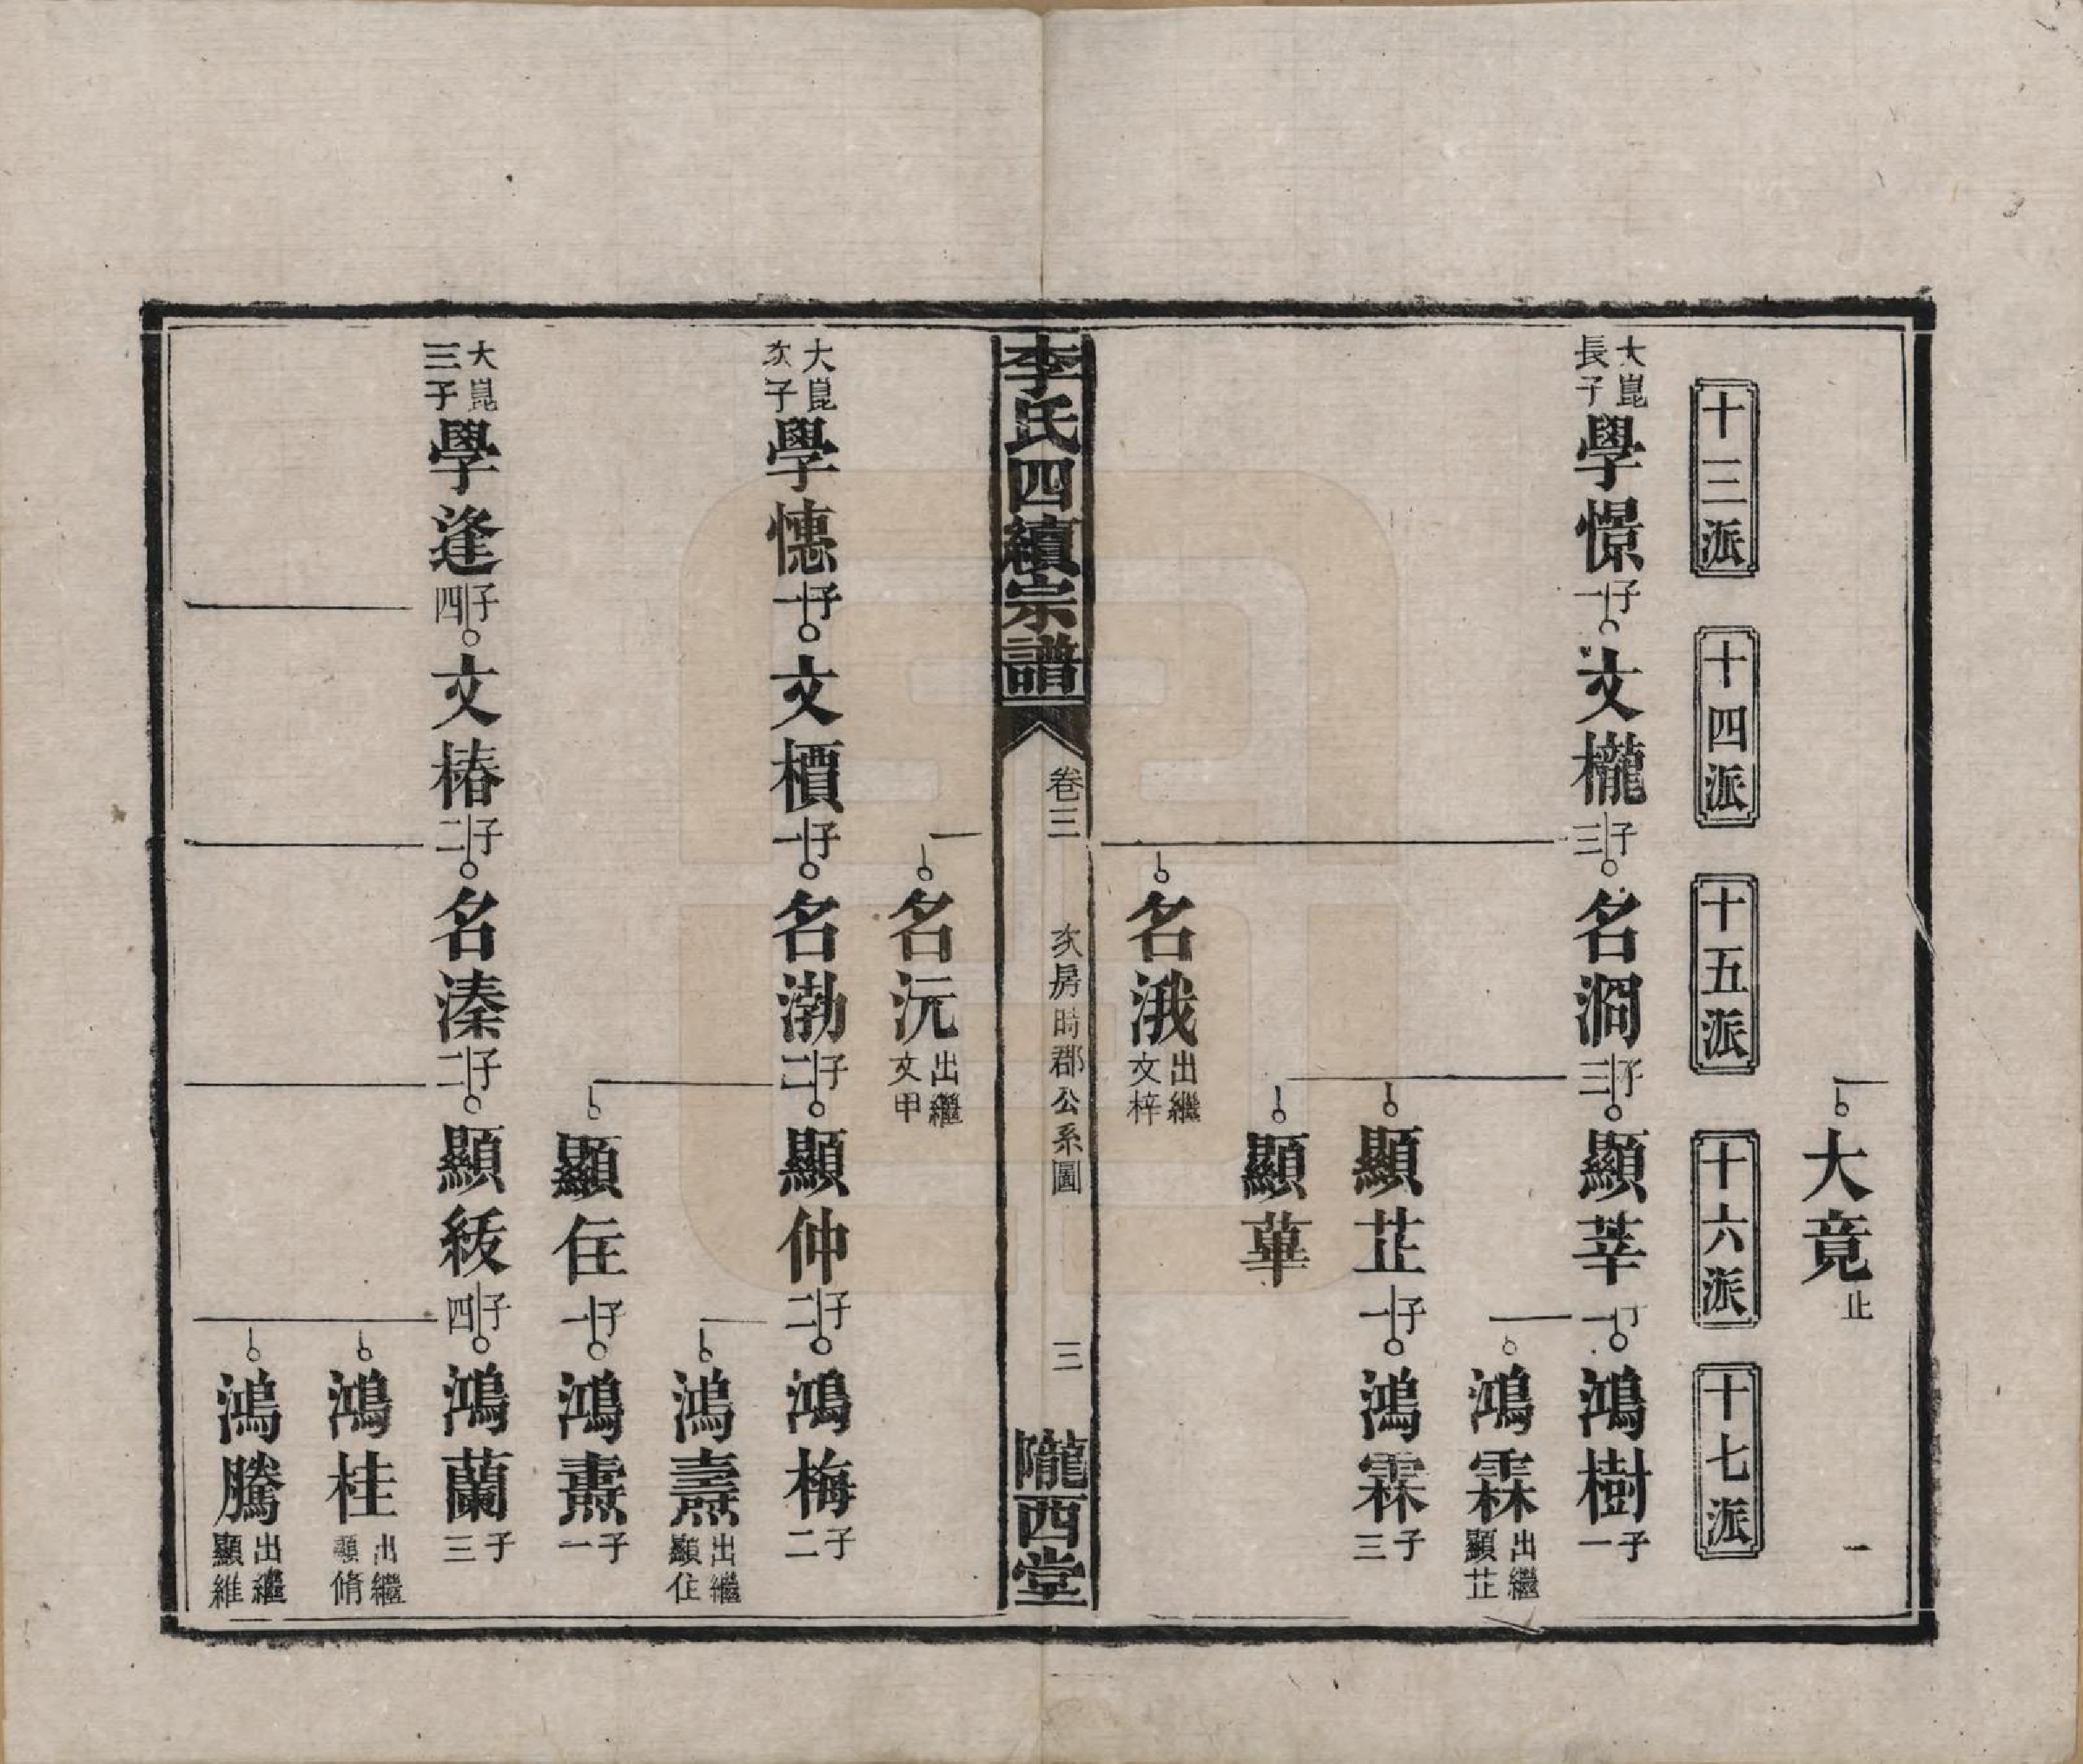 大竟止
一
十三派
十四派
十五派
十六派
十七派
大崑長子學憬子一文櫳子三名澗子三顯莘子二鴻樹子一
鴻霖出繼顯芷
顯芷子一鴻霖子三
顯華
名涐出繼文梓
李氏四續宗譜
卷三
次房時郡公系圖
三
隴西堂
名沅出繼文甲
大崑次子學憓子一文檟子一名渤子二顯仲子二鴻梅子二
鴻燾出繼顯住
顯住子一鴻燾子一
大崑三子學逢子四文椿子二名溱子二顯綏子四鴻蘭子三
鴻桂出繼顯脩
鴻騰出繼顯維